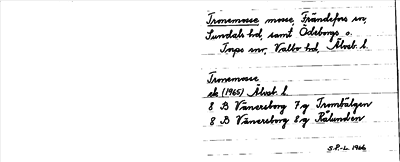 Tronemosse mosse, Frändefors sn,
Sundals hd, samt Ödeborgs o.
Torps snr, Valbo hd, Älvsb. l.
Tronemosse
ek (1965) Älvsb. l.
8 B Vänersborg 7 g Trombälgen
8 B Vänersborg 8 g Rålunden
S.P.-L. 1966